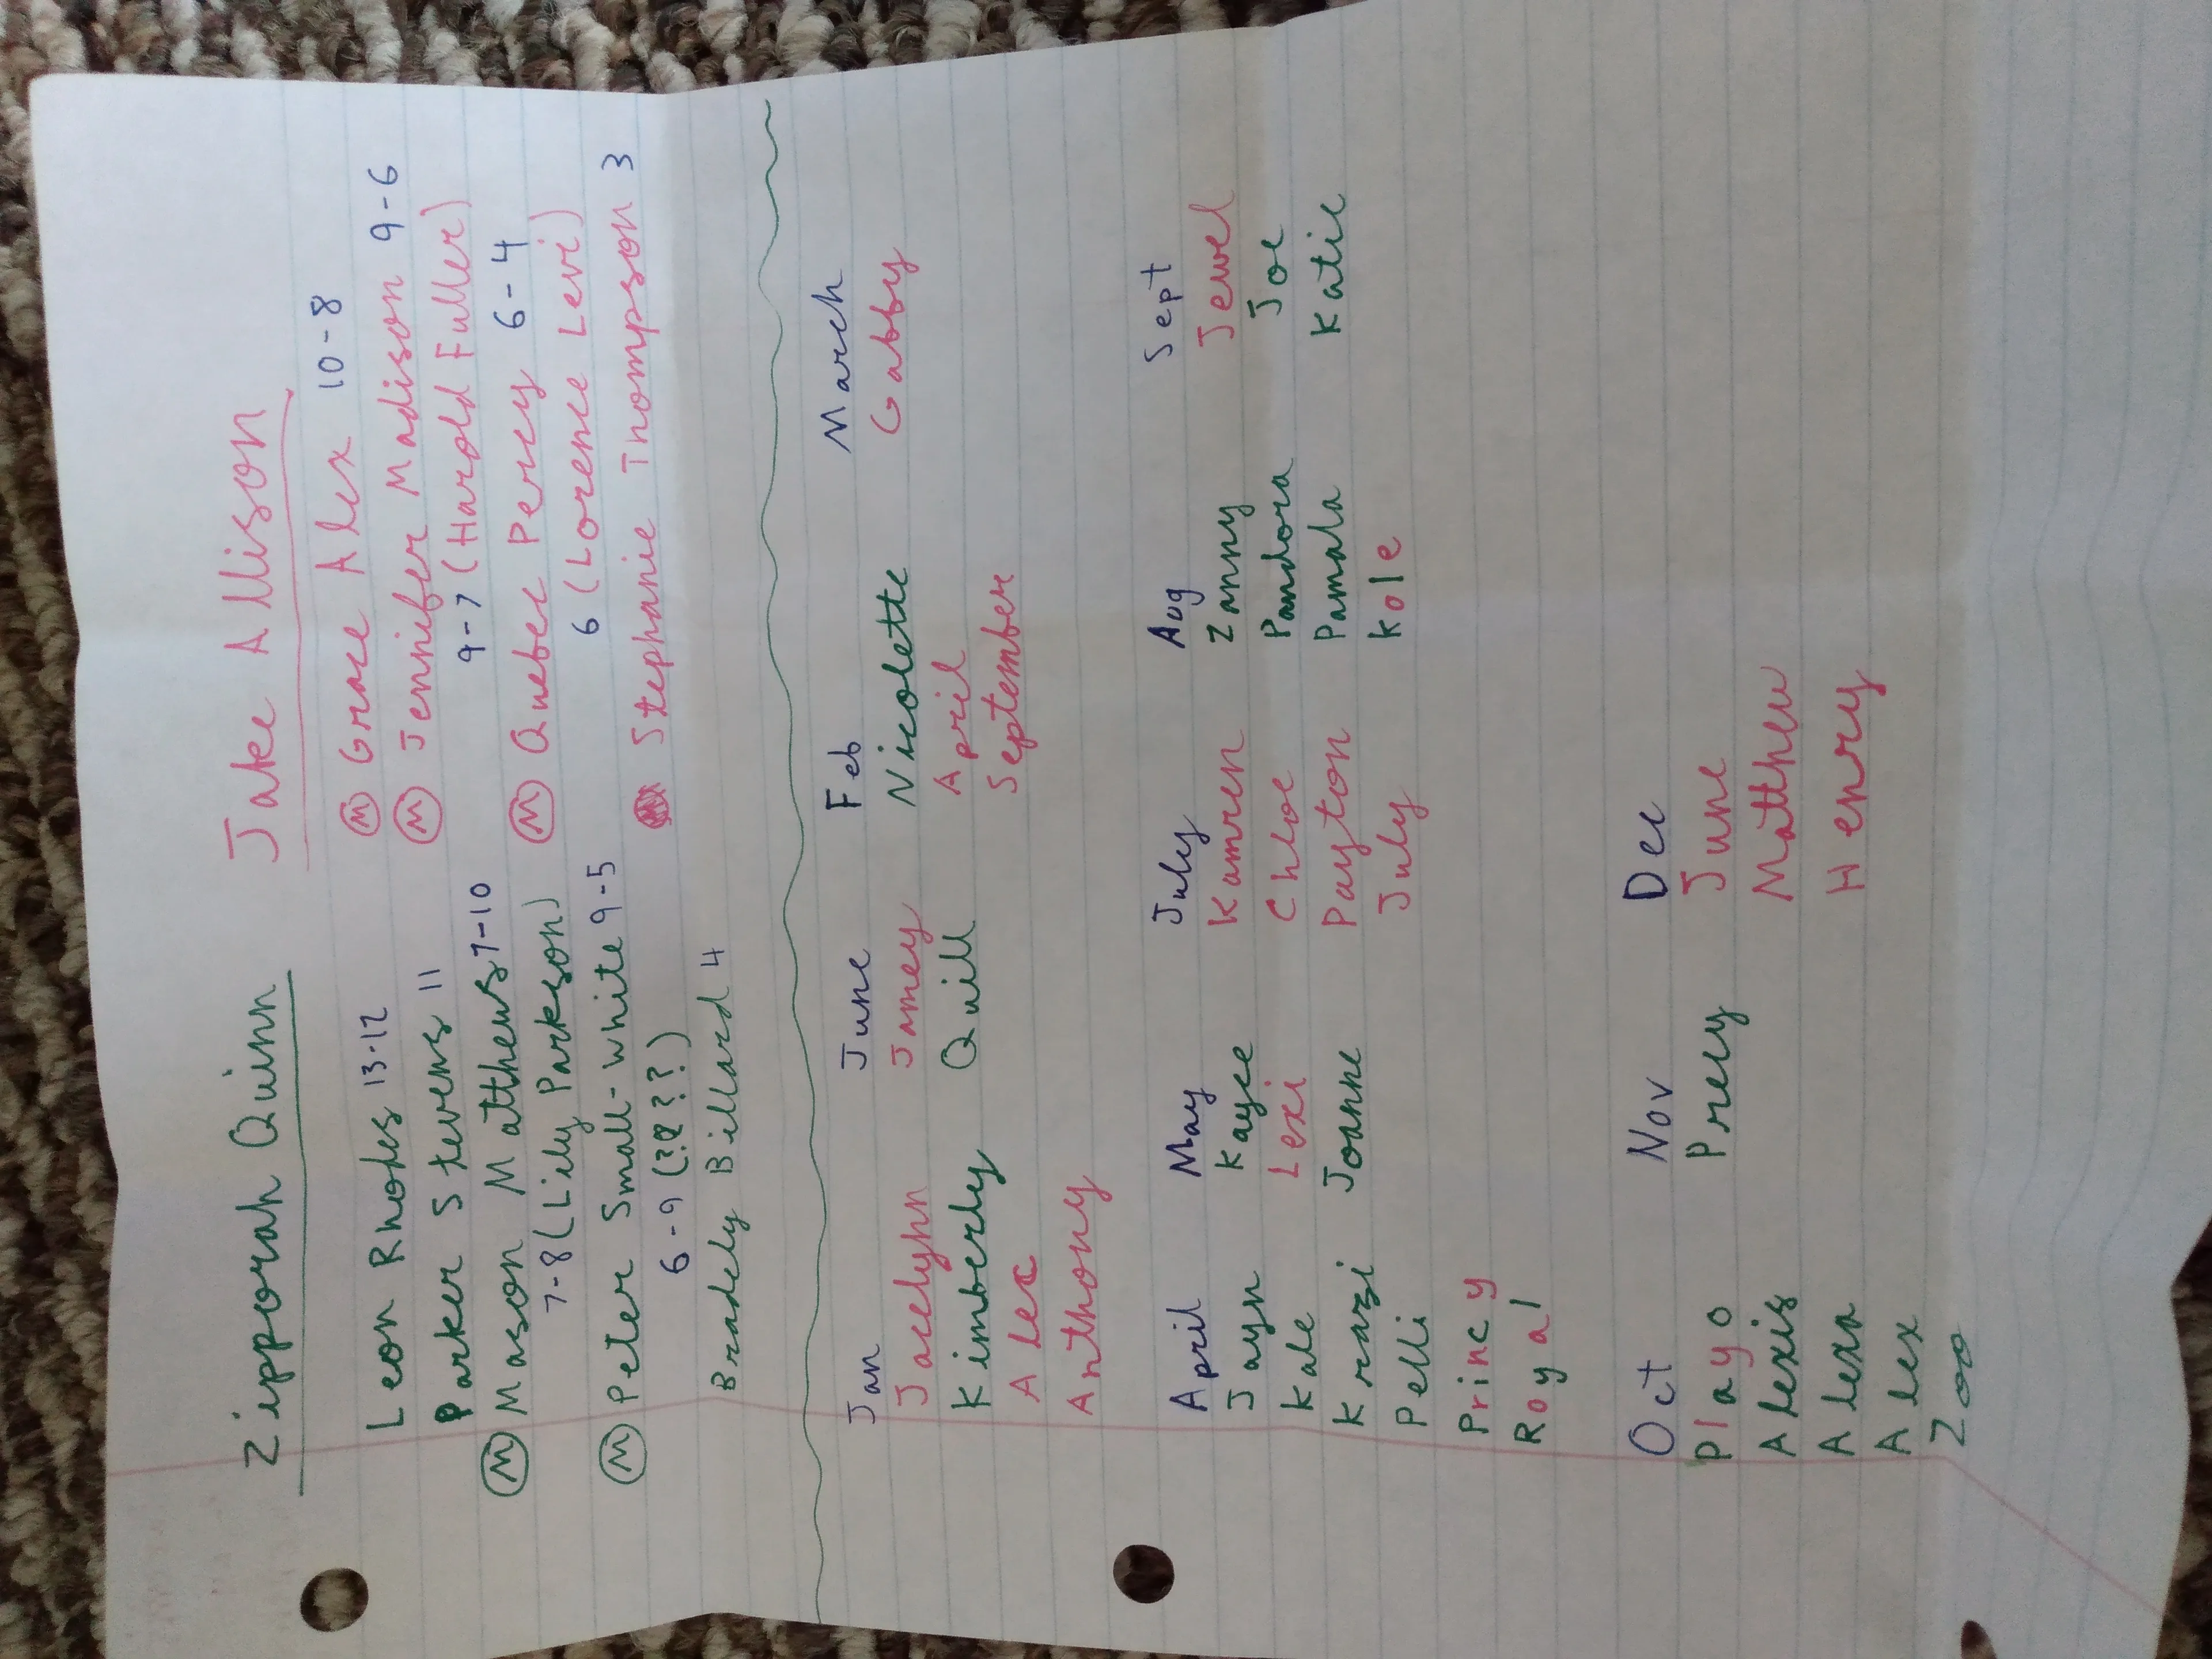 Zipporah Quinn Jake Allison
Leon Rhodes 13-12 Ⓜ Grace Alex 10-8
Parker Stevens 11 Ⓜ Jennifer Madison 9-6
Ⓜ Mason Matthews 7-10 9-7 (Harold Fuller)
7-8 (Lily Parkson) Ⓜ Quebec Percy 6-4
Ⓜ Peter Small-White 9-5 6 (Lorence Levi)
6-9 (????) Stephanie Thompson 3
Bradely Billard 4
Jan June Feb March
Jacelyn Jamey Nicolette Gabby
Kimberly Quill April
Alec September
Anthony
April May July Aug Sept
Jayn Kayce Kamren Zanny Jewel
Kale Lexi Chloe Pandora Joe
Krazi Joanne Payton Pamala Katie
Pelli July Kole
Princy
Royal
Oct Nov Dec
Playo Prery June
Alexis Matthew
Alexa Henry
Alex
Zoo